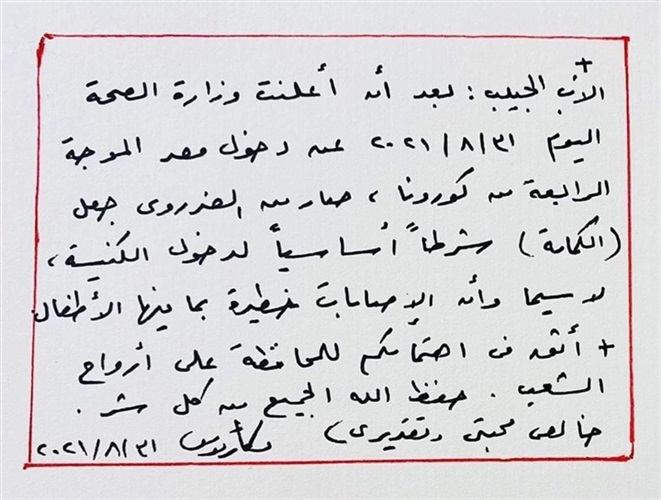 +
الأب الحبيب : بعد أن أعلنت وزارة الصحة
اليوم ٣١/٨/٢٠٢١ عن دخول مصر الموجة
الرابعة من كورونا ، صار من الضروى جعل
(الكمامة) شرطاً أساسياً لدخول الكنيسة ،
لا سيما وأن الإصابات خطيرة بما فيها الأطفال
+ أثق فى اهتمامكم للمحافظة على أرواح
الشعب . حفظ الله الجميع من كل شر .
خالص محبتى وتقديرى ) ٣١/٨/٢٠٢١